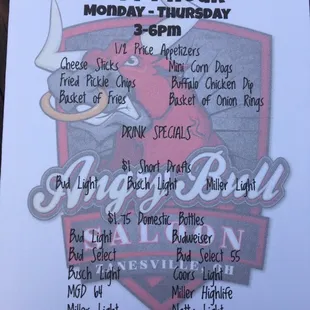 MONDAY - THURSDAY
3-6pm
1/2 Price Appetizers
Cheese Sticks Mini Corn Dogs
Fried Pickle Chips Buffalo Chicken Dip
Basket of Fries Basket of Onion Rings
DRINK SPECIALS
$1 Short Drafts
Angry Bull
Bud Light Busch Light Miller Light
$1.75 Domestic Bottles
Bud Light Budweiser
SALOON
Bud Select Bud Select 55
Busch Light Coors Light
MGD 64 Miller Highlife
Miller Light Natty Light